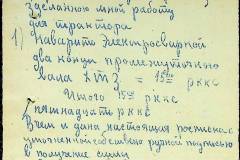 сделанною мной работу
для трактора
1) Наварить Электросваркой
два конца промежуточного
вала ХТЗ = 15 00 ркк с
Итого 15 00 ркк с
(пятнадцать ркк с
В чем и дана настоящая росписка с
собственно ручной подписью
в получение сумы